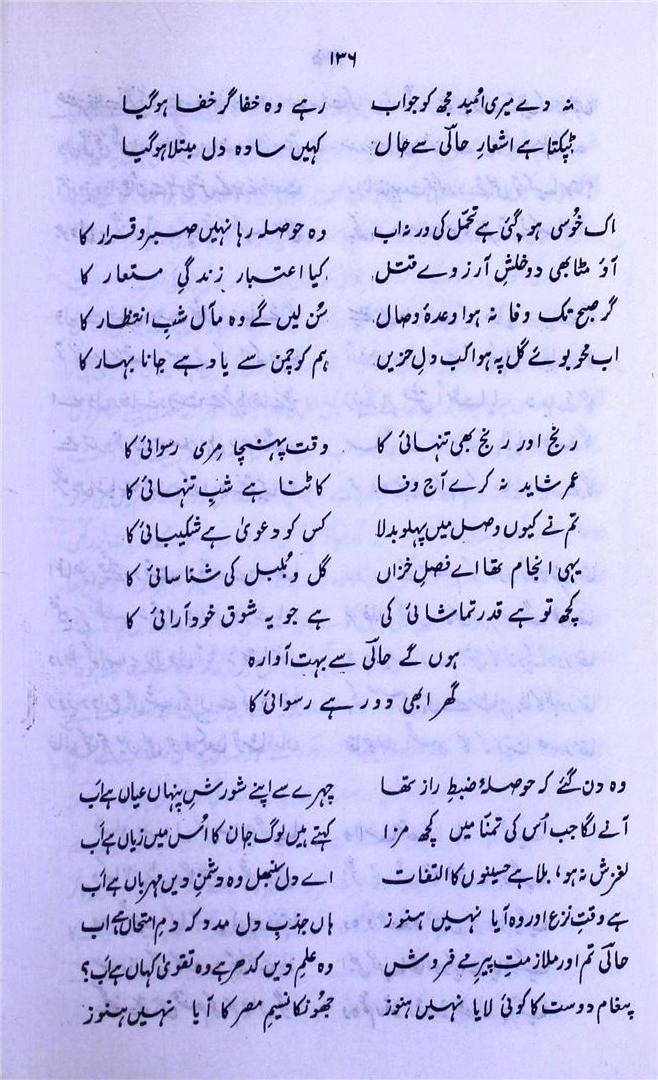 ۱۳۶
نہ دے میری امید مجھ کو جواب رہے وہ خفا گر خفا ہوگیا
ٹپکتا ہے اشعارِ حالیؔ سے حال کہیں سادہ دل مبتلا ہوگیا
اک خُوسی ہوگئی ہے تحمّل کی ورنہ اب وہ حوصلہ رہا نہیں صبر و قرار کا
آؤ مٹا بھی دو خلشِ آرزوے قتل کیا اعتبار زندگیِ مستعار کا
گر صبح تک وفا نہ ہوا وعدۂ وصال سُن لیں گے وہ مآل شبِ انتظار کا
اب محوِ بوئے گل پہ ہوا کب دلِ حزیں ہم کو چمن سے یاد ہے جانا بہار کا
رنج اور رنج بھی تنہائی کا وقت پہنچا مری رسوائی کا
عمر شاید نہ کرے آج وفا کاٹنا ہے شبِ تنہائی کا
تم نے کیوں وصل میں پہلو بدلا کس کو دعویٰ ہے شکیبائی کا
یہی انجام تھا اے فصلِ خزاں گل و بُلبل کی شناسائی کا
کچھ تو ہے قدر تماشائی کی ہے جو یہ شوق خود آرائی کا
ہوں گے حالیؔ سے بہت آوارہ
گھر ابھی دور ہے رسوائی کا
وہ دن گئے کہ حوصلۂ ضبطِ راز تھا چہرے سے اپنے شورشِ پنہاں عیاں ہے اب
آنے لگا جب اُس کی تمنّا میں کچھ مزا کہتے ہیں لوگ جان کا اُس میں زیاں ہے اب
لغزش نہ ہو، بلا ہے حسینوں کا التفات اے دل سنبھل وہ دشمنِ دیں مہرباں ہے اب
ہے وقتِ نزع اور وہ آیا نہیں ہنوز ہاں جذبِ دل مدد کہ دمِ امتحاں ہے اب
حالیؔ تم اور ملازمتِ پیرِ مے فروش وہ علمِ دیں کدھر ہے وہ تقویٰ کہاں ہے اب؟
پیغام دوست کا کوئی لایا نہیں ہنوز جھونکا نسیمِ مصر کا آیا نہیں ہنوز